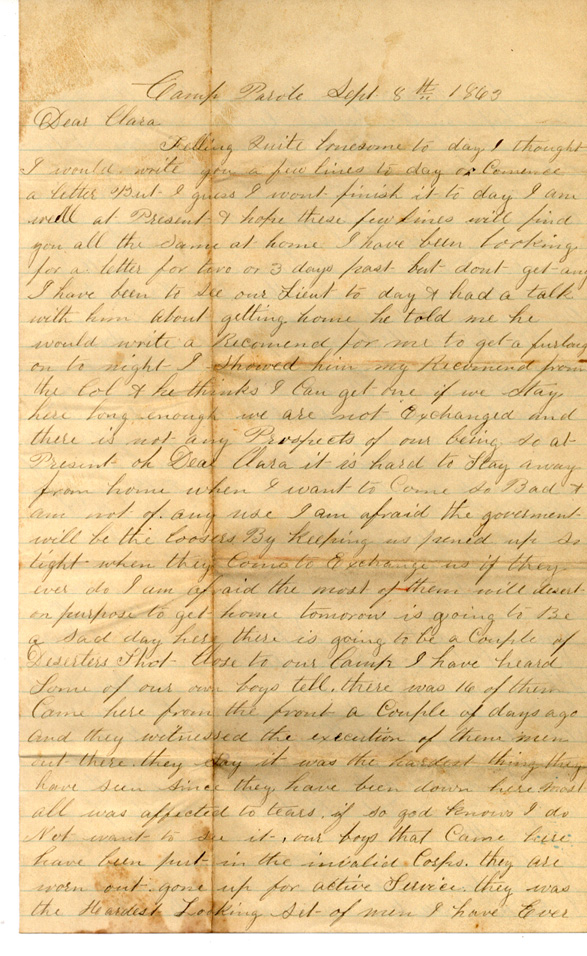 Camp Parole Sept 8th 1863
Dear Clara
Felling Quite lonesome to day I thought
I would write you a few lines to day or Comence
a letter But I guess I wont finish it to day I am
well at Present & hope these few lines will find
you all the same at home I have been looking
for a letter for two or 3 days past but dont get any
I have been to see our Lieut to day & had a talk
with him about getting home he told me he
would write a Recomend for me to get a furloug
on to night I showed him my Recomend from
the Col & he thinks I Can get one if we stay
here long enough we are not Exchanged and
there is not any Prospects of our being so at
Present oh Dear Clara it is hard to Stay away
from home when I want to Come so Bad &
am not of any use I am afraid the goverment
will be the loosers By keeping us pened up so
tight when they Come to Exchange us if they
ever do I am afraid the most of them will desert
on purpose to get home tomorow is going to Be
a Sad day here there is going to be a Couple of
Deserters Shot Close to our Camp I have heard
Some of our own boys tell. there was 16 of them
Came here from the front a Couple of days ago
and they witnessed the excution of them men
out there. they Say it was the hardest thing they
have seen since they have been down here most
all was affected to tears. if so god knows I do
Not want to see it. our boys that Came here
have been put in the invalid Corps. they are
worn out. gone up for active Service. they was
the Hardest Looking Set of men I have Ever